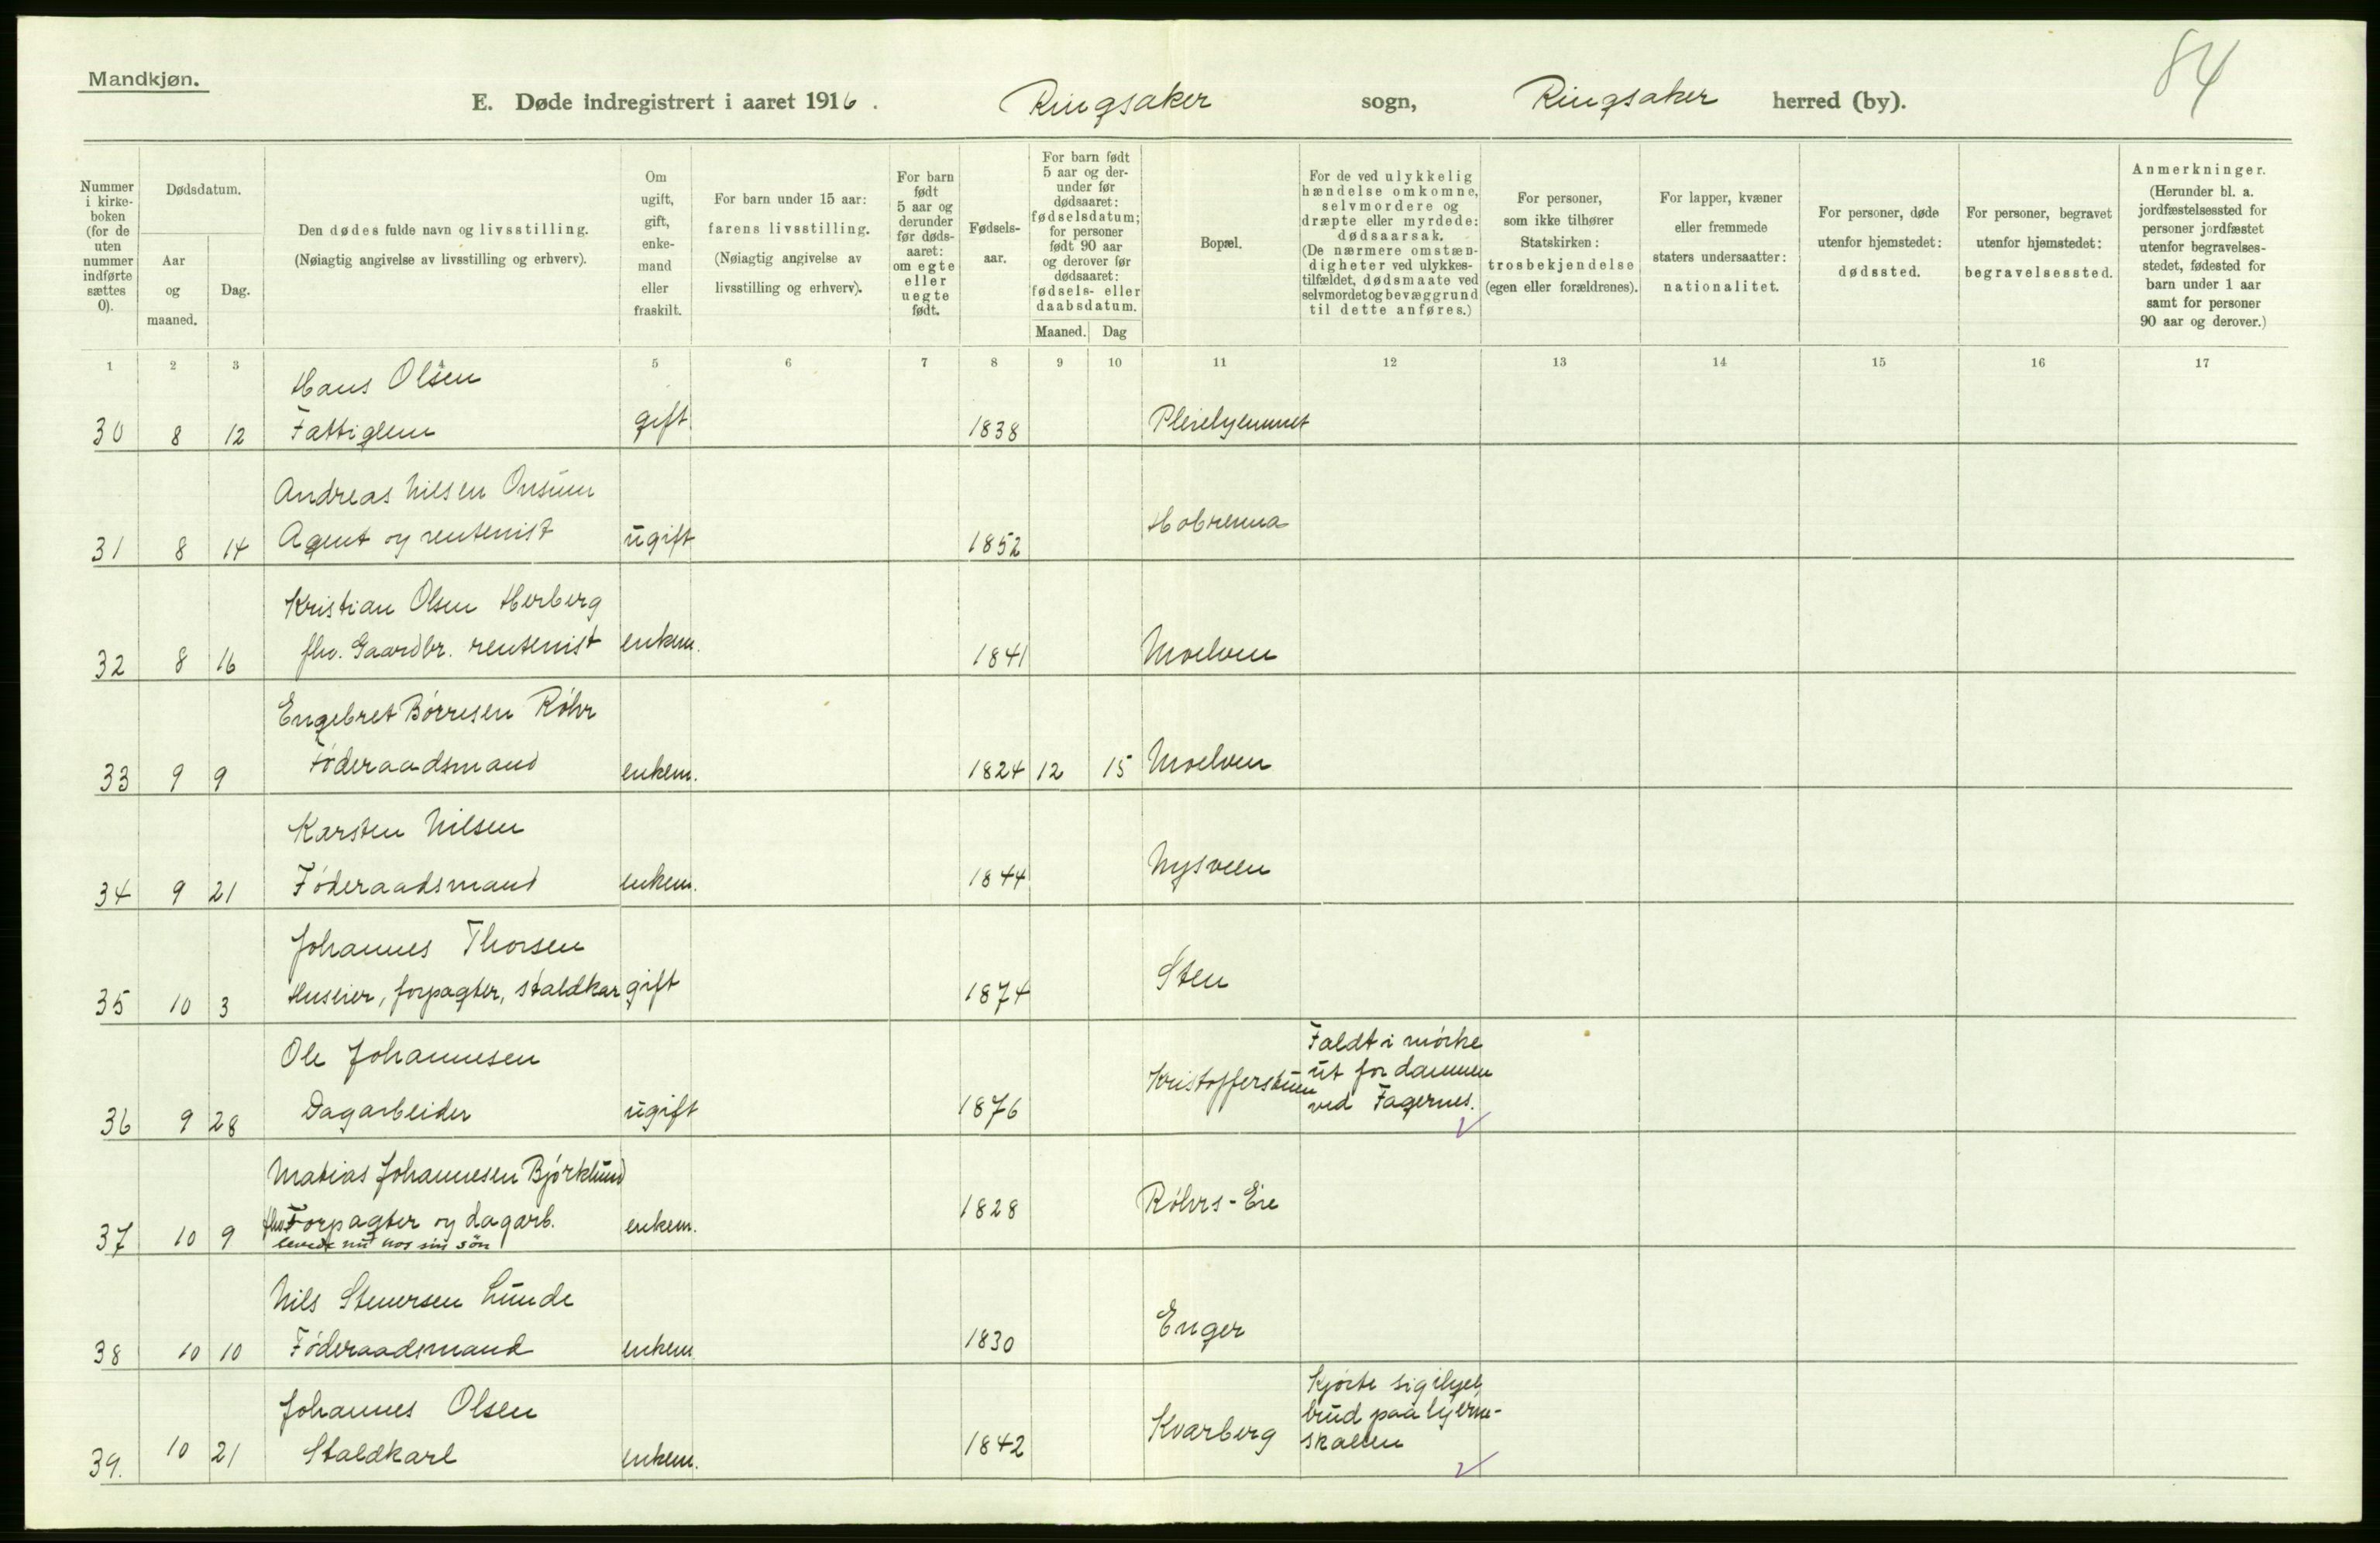 Mandkjøn.
84
E. Døde indregistrert i aaret 1916. Ringsaker sogn, Ringsaker herred (by).
Nummer i kirke- boken (for de uten nummer indførte sættes 0).
Dødsdatum.
Aar og maaned.
Dag.
Den dødes fulde navn og livsstilling.
(Nøiagtig angivelse av livsstilling og erhverv).
Om ugift, gift, enke- mand eller fraskilt.
For barn under 15 aar: farens livsstilling.
(Nøiagtig angivelse av livsstilling og erhverv).
For barn født 5 aar og derunder før døds- aaret: om egte eller uegte født.
Fødsels- aar.
For barn født 5 aar og der- under før dødsaaret: fødselsdatum; for personer født 90 aar og derover før dødsaaret: fødsels- eller daabsdatum.
Maaned. Dag
Bopæl.
For de ved ulykkelig hændelse omkomne, selvmordere og dræpte eller myrdede: dødsaarsak.
(De nærmere omstæn- digheter ved ulykkes- tilfældet, dødsmaate ved selvmordet og bevæggrund til dette anføres.)
For personer, som ikke tilhører Statskirken: trosbekjendelse (egen eller forældrenes).
For lapper, kvæner eller fremmede staters undersaatter: nationalitet.
For personer, døde utenfor hjemstedet: dødssted.
For personer, begravet utenfor hjemstedet: begravelsessted.
Anmerkninger.
(Herunder bl. a. jordfæstelsessted for personer jordfæstet utenfor begravelses- stedet, fødested for barn under 1 aar samt for personer 90 aar og derover.)
1 2 3 5 6 7 8 9 10 11 12 13 14 15 16 17
Hans Olsen
30 8 12 Fattiglem gift 1838 Pleiehjemmet
Andreas Nilsen Onsum
31 8 14 Agent og rentenist ugift 1852 Hobrenna
Kristian Olsen Herberg
32 8 16 fhv. Gaardbr. rentenist enkem. 1841 Moelven
Engebret Børresen Røhr
33 9 9 Føderaadsmand enkem. 1824 12 15 Moelven
Karsten Nilsen
34 9 21 Føderaadsmand enkem. 1844 Nysveen
Johannes Thorsen
35 10 3 Huseier, forpagter, staldkar gift 1874 Sten
Ole Johannesen
36 9 28 Dagarbeider ugift 1876 Kristofferstuen
Faldt i mørke
ut for dammen
ved Fagernes.
Matias Johannesen Bjørklund
37 10 9 fhv. Forpagter og dagarb. enkem. 1828 Røhrs-Eie
levede nu hos sin søn
Nils Stenersen Lunde
38 10 10 Føderaadsmand enkem 1830 Enger
Johannes Olsen
39. 10 21 Staldkarl enkem. 1842 Kvarberg
Kjørte sig ihjel
brud paa hjerne-
skallen